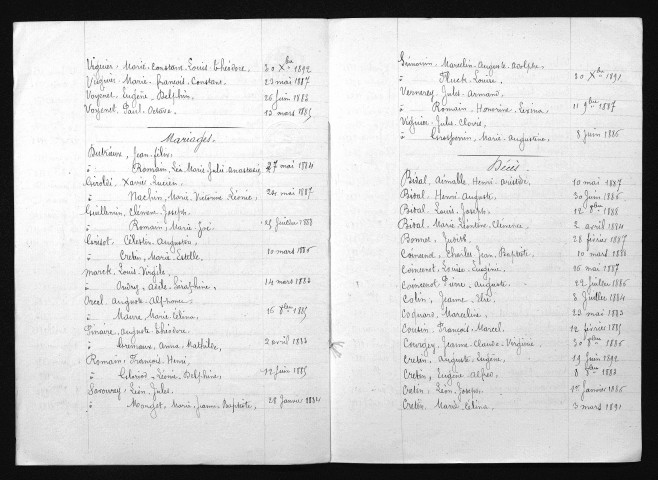 Viguier, Marie Constant Louis Théodore, 30 Xbre 1892
Viguier Marie François Constant, 22 mai 1887
Voyenet Eugène Delphin, 26 juin 1882
Voyenet Paul Octave, 12 mars 1885
Mariages.
Jean
à Romain, Marie Julie Anastasie 27 mai 1884
Girolde Xavier Lucien,
à Marie Victorine Léonie, 24 mai 1887
Guillemin, Clément Joseph,
à Romain, Marie Zoé juillet 1888
Célestin Augustin,
à Cretin, Marie Estelle, 10 mars 1886
Louis Virgile,
à Adèle Séraphine, 14 mars 1883
Auguste Alphonse,
à Marie Célina, 16 1885
Auguste Théodore,
à Anna Mathilde, 2 avril 1883
Romain, François Henri,
à Léonie Delphine, 12 juin 1885
Léon Jules
à Monget, Marie Jeanne Baptiste, 28 janvier 1884
Simonin, Marcelin Auguste Adolphe,
à Fluck, Louise, 30 Xbre 1891
Vernerey, Jules Armand,
à Romain, Honorine 11 9bre 1887
Viguier, Jules Clovis,
à Marie Augustine, 8 juin 1886
Décès
Bidal, Aimable Henri Aristide, 10 mai 1887
Bidal, Henri Auguste, 30 juin 1886
Bidal, Louis Joseph, 12 1888
Bidal, Marie Léontine Clémence, 2 avril 1884
Bonnet, Judith 28 février 1887
Charles Jean Baptiste, 10 mars 1888
Louise Eugénie, 26 mai 1887
Pierre Auguste, 22 juillet 1886
Colin, Jeanne 8 juillet 1884
Coquard, Marceline, 22 mai 1883
Cousin, François Marcel, 12 février 1885
Jeanne Claude Virginie, 30 1886
Cretin, Auguste Eugène, 19 juin 1892
Cretin, Eugène Alfred, 8 1883
Cretin, Léon Joseph, 1er janvier 1886
Cretin, Marie Célina, 3 mars 1891